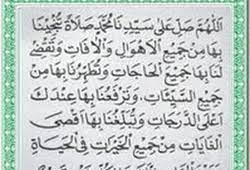 اَللّٰهُمَّ صَلِّ عَلٰى سَيِّدِنَا مُحَمَّدٍ صَلَاةً تُنْجِيْنَا
بِهَا مِنْ جَمِيْعِ الْاَهْوَالِ وَالْاٰفَاتِ وَتَقْضِيْ
لَنَا بِهَا جَمِيْعَ الْحَاجَاتِ وَتُطَهِّرُنَا بِهَا مِنْ
جَمِيْعِ السَّيِّئَاتِ وَتَرْفَعُنَا بِهَا عِنْدَكَ
اَعْلَى الدَّرَجَاتِ وَتُبَلِّغُنَا بِهَا اَقْصَى
الْغَايَاتِ مِنْ جَمِيْعِ الْخَيْرَاتِ فِي الْحَيَاةِ